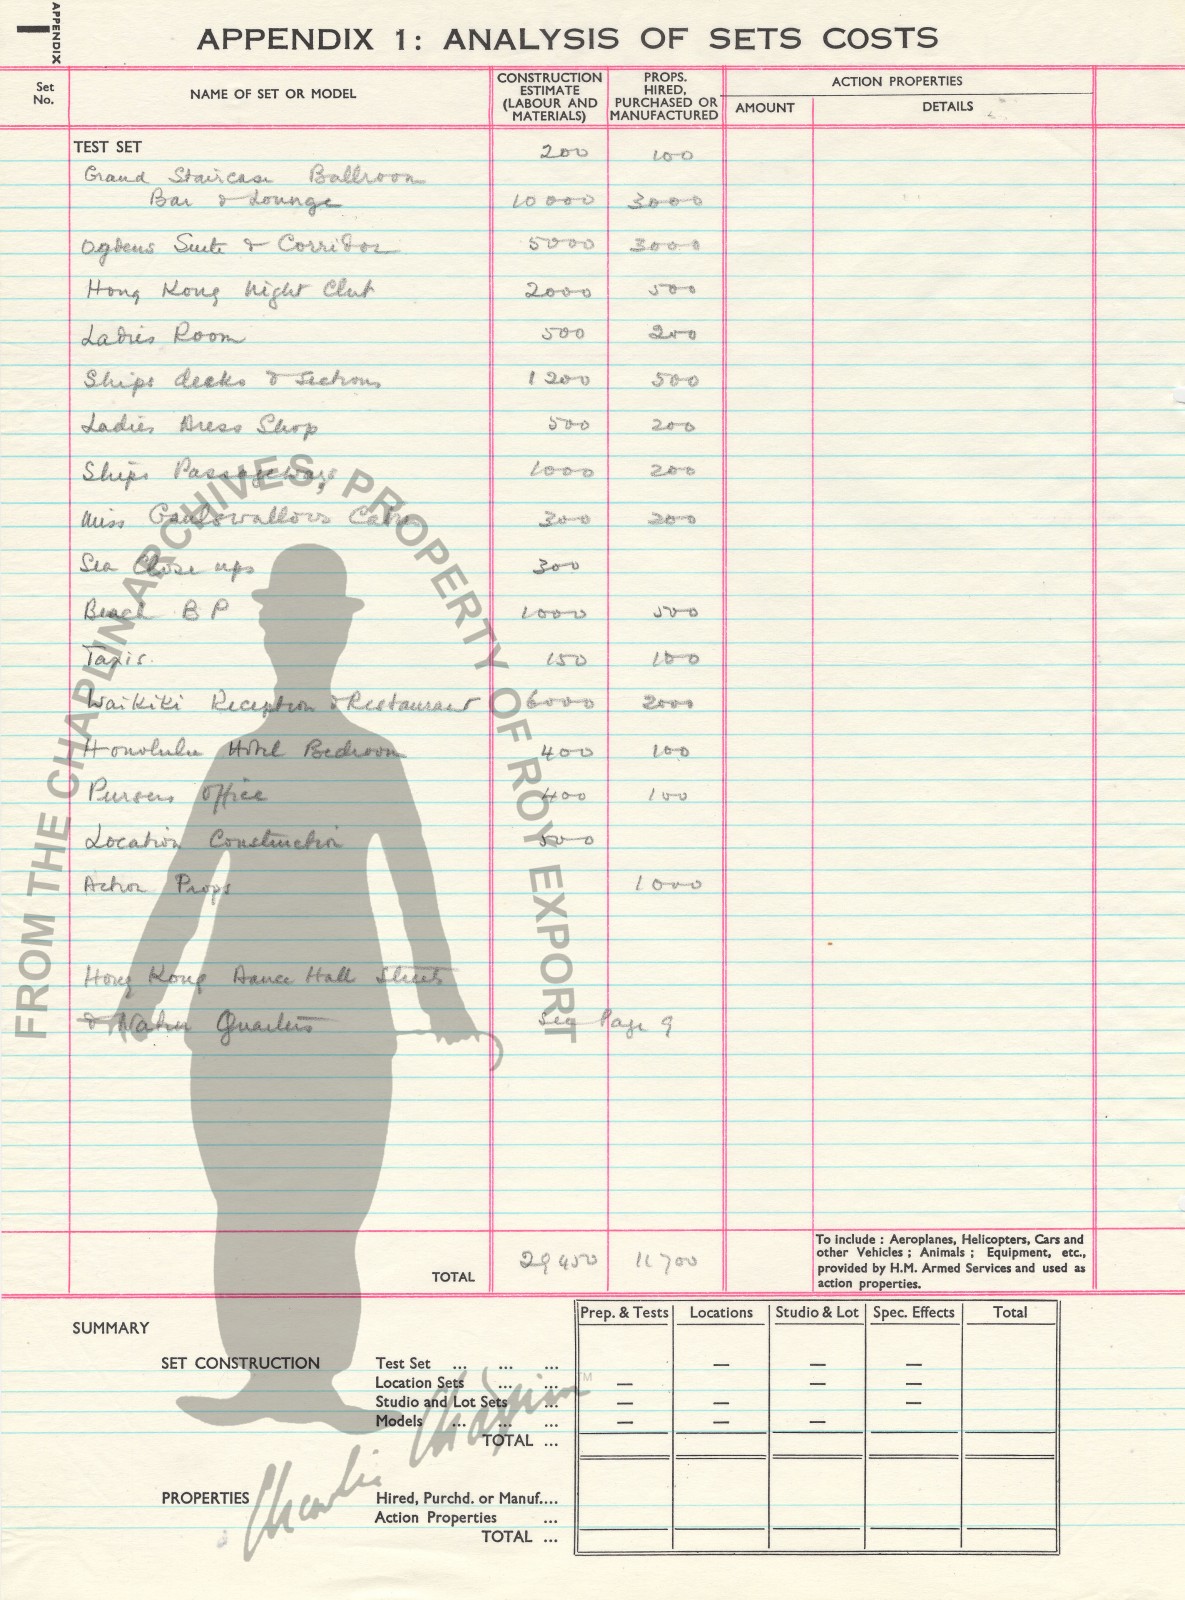 APPENDIX I
APPENDIX 1: ANALYSIS OF SETS COSTS
Set No.
NAME OF SET OR MODEL
CONSTRUCTION ESTIMATE (LABOUR AND MATERIALS)
PROPS. HIRED, PURCHASED OR MANUFACTURED
ACTION PROPERTIES
AMOUNT
DETAILS
TEST SET 200 100
Grand Staircase Ballroom
Bar & Lounge 10000 3000
Ogdens Suite & Corridor 5000 3000
Hong Kong Night Club 2000 500
Ladies Room 500 200
Ships decks & Sections 1200 500
Ladies Dress Shop 500 200
Ships Passageways 1000 200
Miss Gaulswallows Cabin 300 200
Sea Close ups 300
Beach B P 1000 500
Taxis 150 100
Waikiki Reception & Restaurant 6000 2000
Honolulu Hotel Bedroom 400 100
Pursers Office 400 100
Location Construction 500
Action Props 1000
Hong Kong Dance Hall Streets
& Quarters See Page 9
TOTAL 29450 11700
To include : Aeroplanes, Helicopters, Cars and
other Vehicles ; Animals ; Equipment, etc.,
provided by H.M. Armed Services and used as
action properties.
SUMMARY
Prep. & Tests Locations Studio & Lot Spec. Effects Total
SET CONSTRUCTION Test Set ... ... ... — — —
Location Sets ... ... — — —
Studio and Lot Sets ... — — —
Models ... ... ... — — —
TOTAL ...
PROPERTIES Hired, Purchd. or Manuf....
Action Properties ...
TOTAL ...
FROM THE CHAPLIN ARCHIVES, PROPERTY OF ROY EXPORT
Charlie Chaplin™